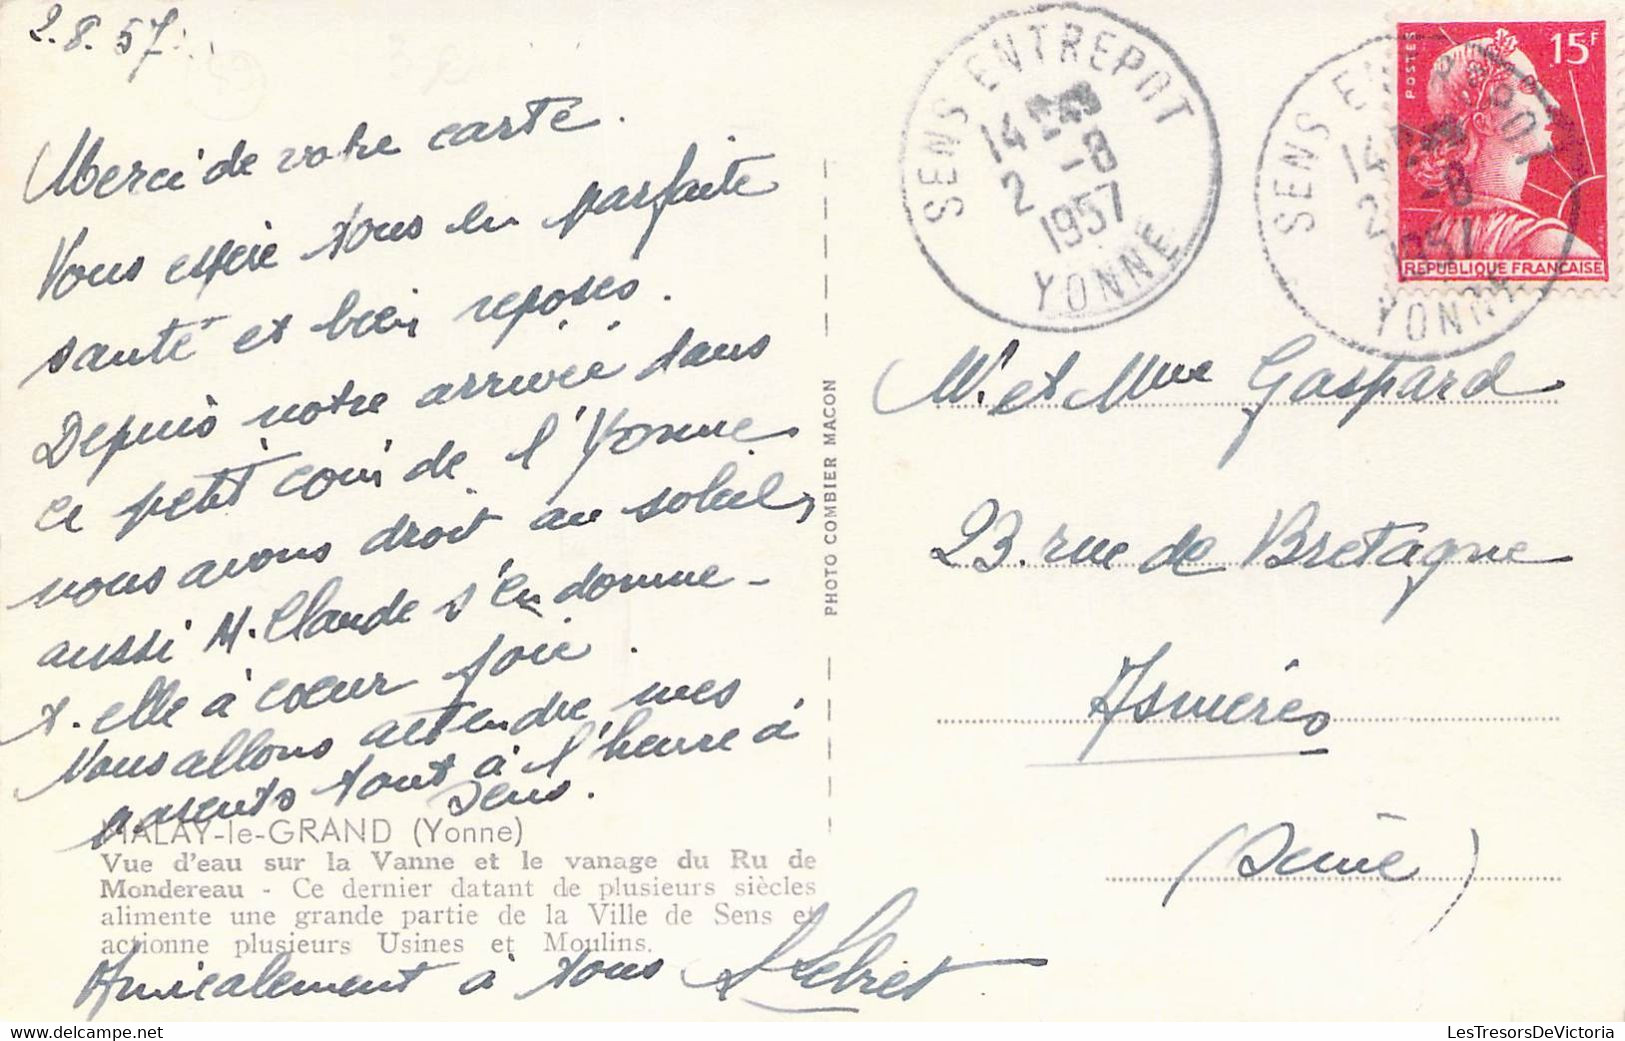 2.8.57
Merci de votre carte.
Vous espère tous en parfaite
santé et bien reposés.
Depuis notre arrivée dans
ce petit coin de l'Yonne
nous avons droit au soleil,
aussi M. Claude s'en donne-
t-elle à coeur joie.
Nous allons attendre mes
parents tout à l'heure à
Sens.
MALAY-le-GRAND (Yonne)
Vue d'eau sur la Vanne et le vanage du Ru de
Mondereau - Ce dernier datant de plusieurs siècles
alimente une grande partie de la Ville de Sens et
actionne plusieurs Usines et Moulins.
Amicalement à tous
PHOTO COMBIER MACON
SENS ENTREPOT
14
2 -8
1957
YONNE
SENS
14
2 -8
1957
YONNE
POSTES
15F
REPUBLIQUE FRANCAISE
M. et Mme Gaspard
23. rue de Bretagne
Asnières
(Seine)
LesTresorsDeVictoria